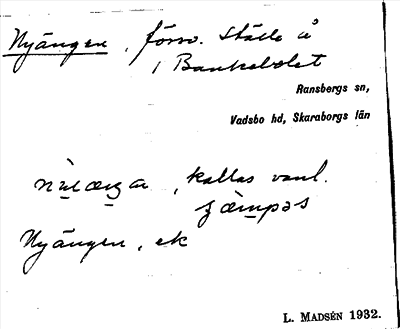 Nyängen, försv. ställe å
, Bankebolet
Ransbergs sn,
Vadsbo hd, Skaraborgs län
, kallas vanl.
Nyängen, ek
L. MADSÉN 1932.